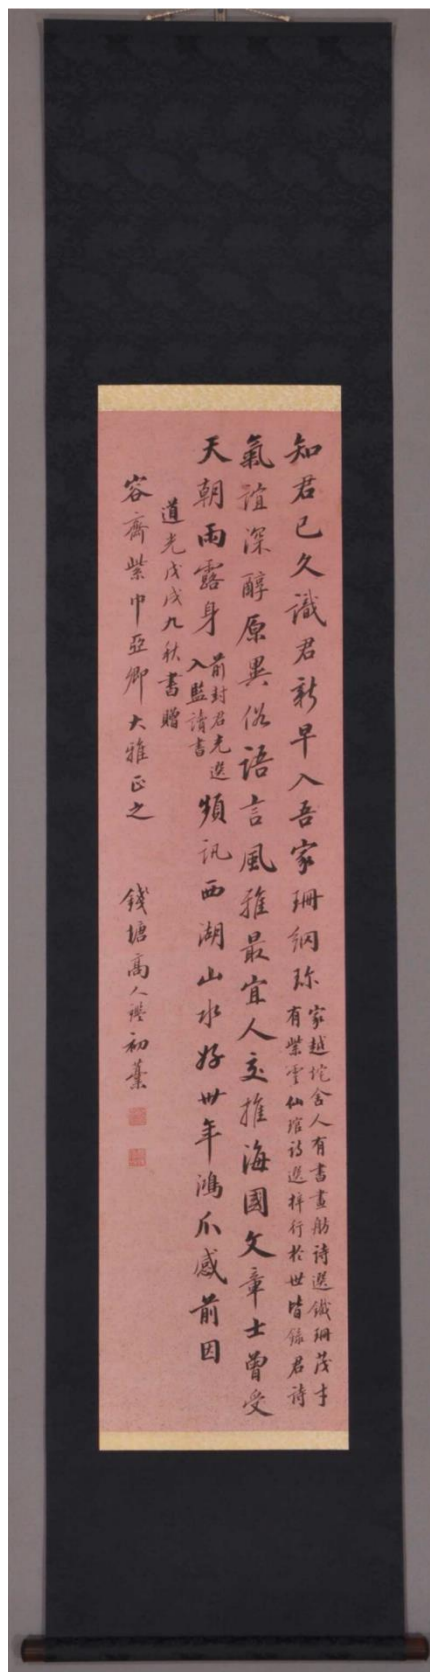 知君已久識君新早入吾家珊網珎
家越垞舍人有書畫舫詩選鐵珊茂才
有紫雲仙琯詩選梓行於世皆錄君詩
氣誼深醇原異俗語言風雅最宜人交推海國文章士曾受
天朝雨露身
前封君先選
入監請書
頻訊西湖山水好卅年鴻爪感前因
道光戊戌九秋書贈
容齊紫巾亞卿大雅正之
錢塘高人鑑初藁